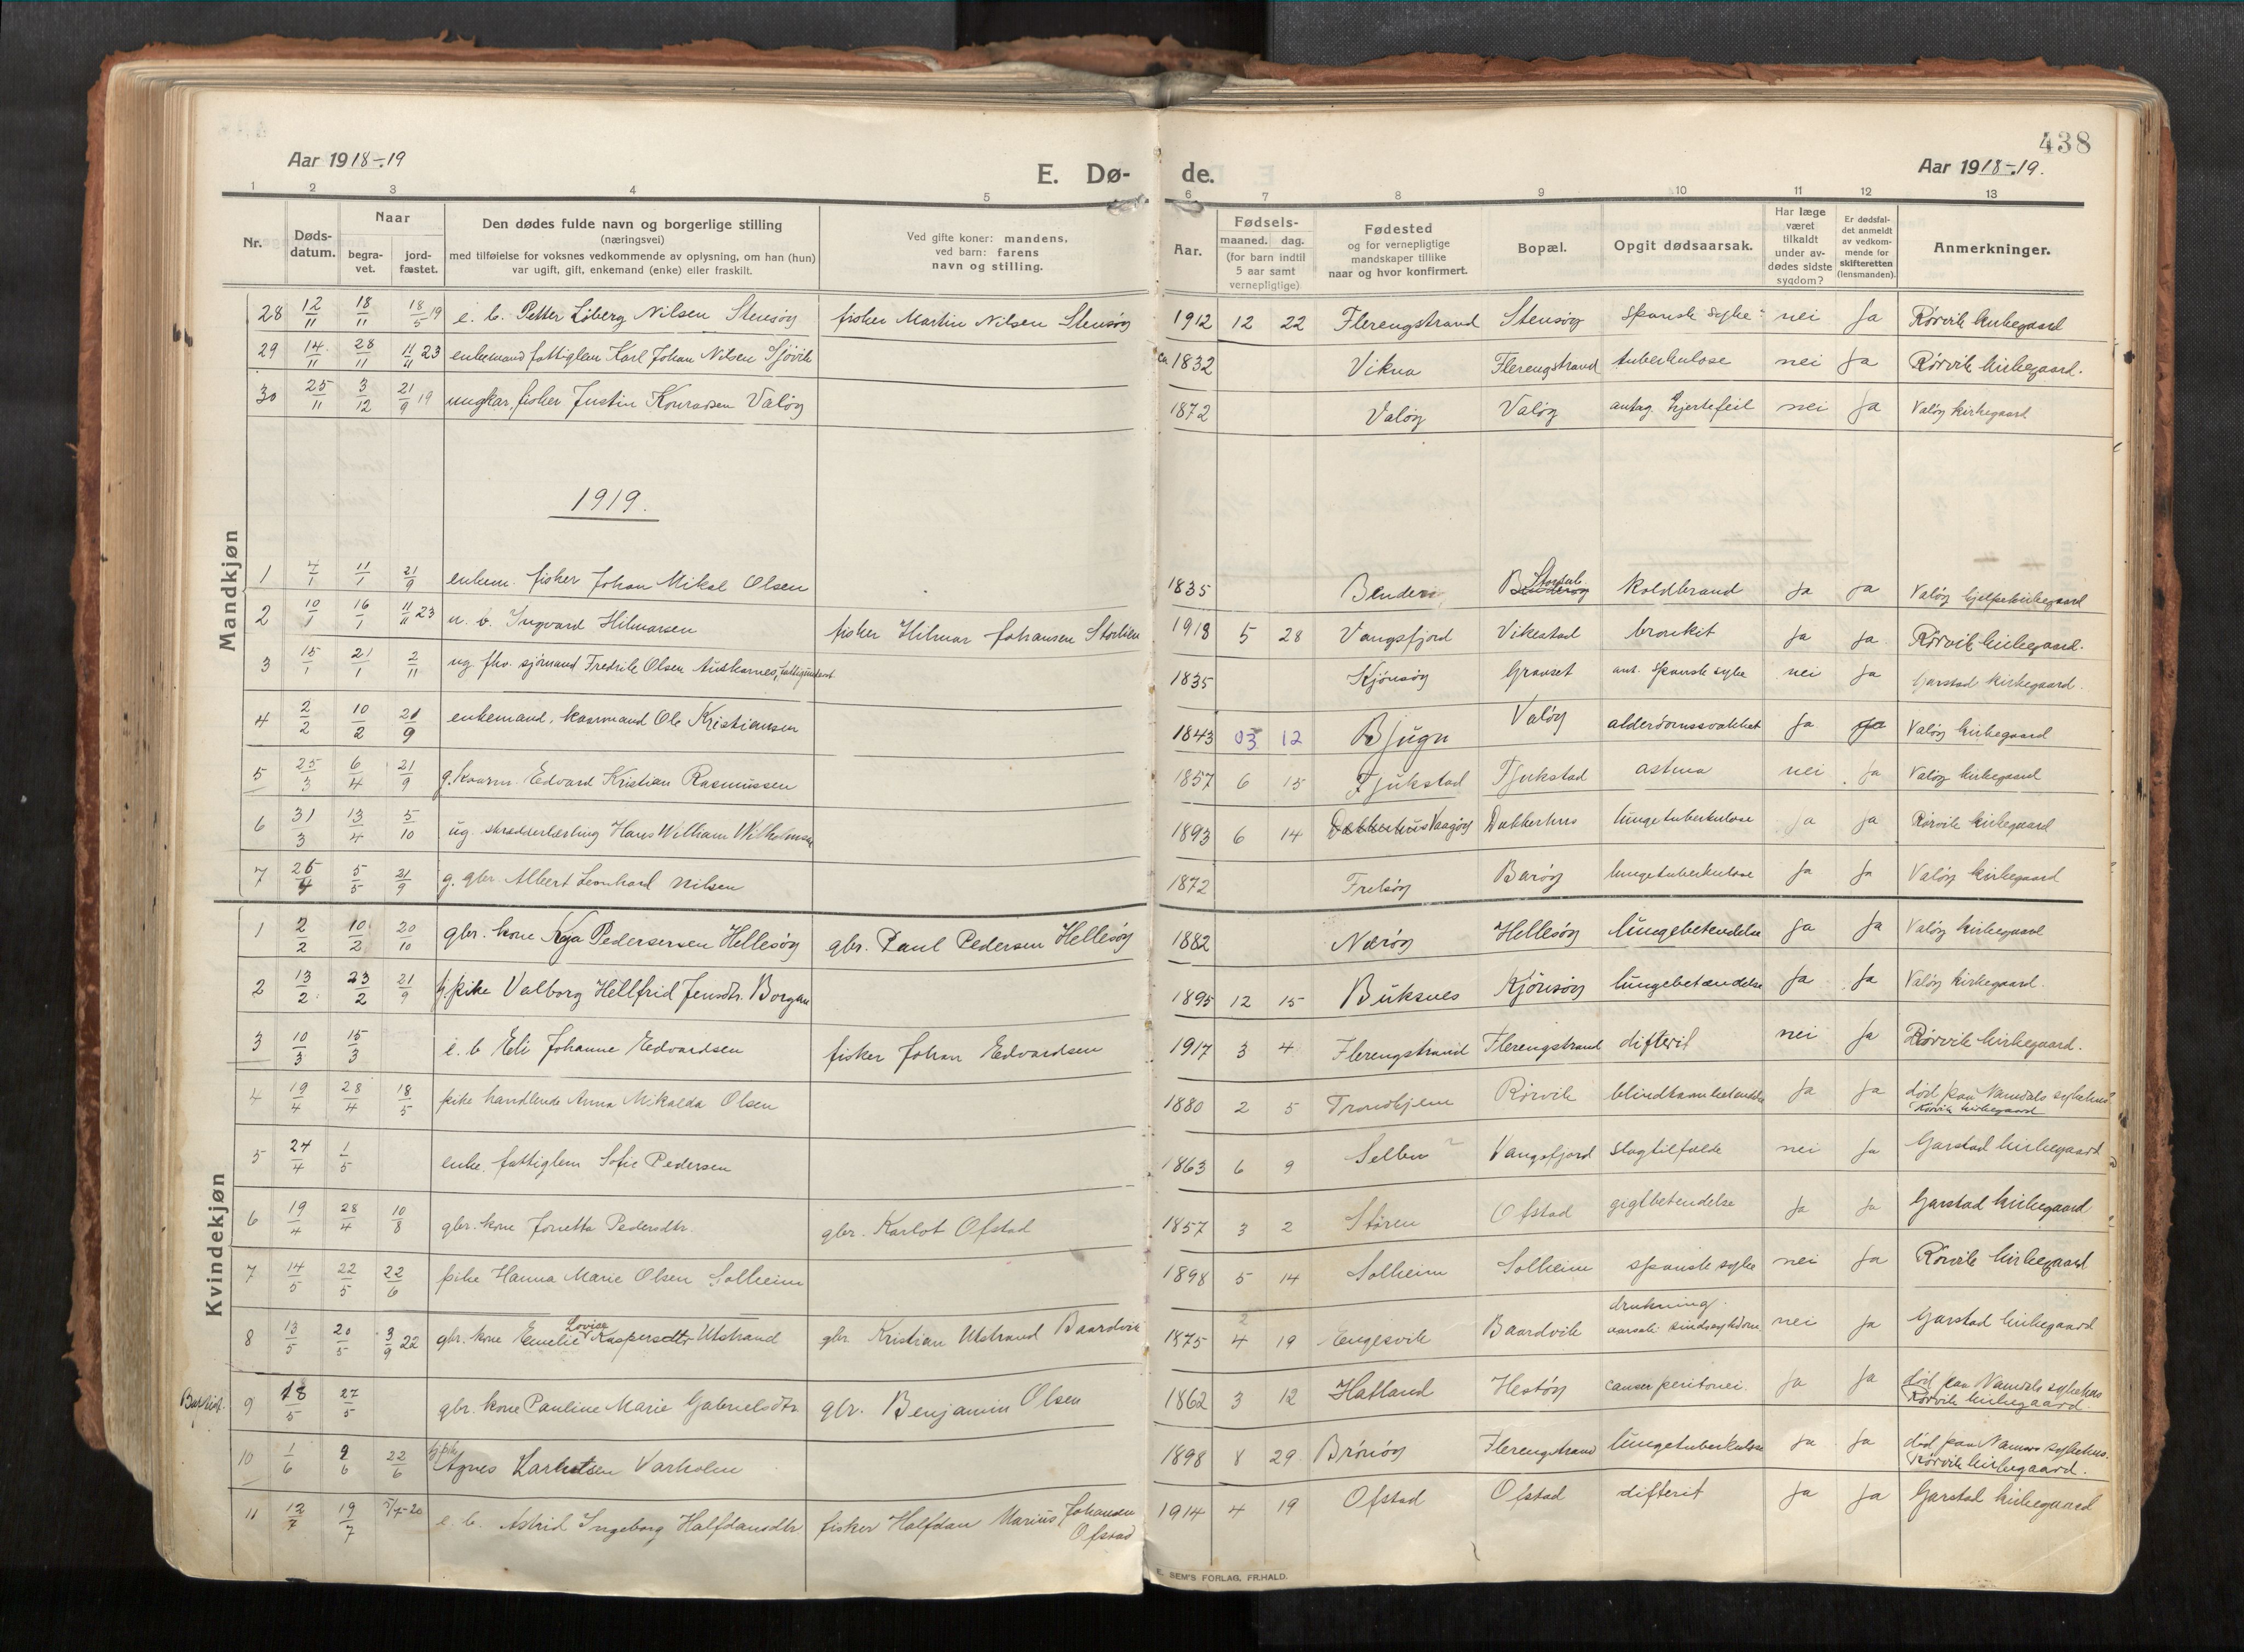 438
Aar 1918-19
E. Dø-
de.
Aar 1918-19.
1 2 3 4 5 6 7 8 9 10 11 12 13
Nr.
Døds-
datum.
Naar
begra-
vet.
jord-
fæstet.
Den dødes fulde navn og borgerlige stilling
(næringsvei)
med tilføielse for voksnes vedkommende av oplysning, om han (hun)
var ugift, gift, enkemand (enke) eller fraskilt.
Ved gifte koner: mandens,
ved barn: farens
navn og stilling.
Aar.
Fødsels-
maaned. dag.
(for barn indtil
5 aar samt
vernepligtige)
Fødested
og for vernepligtige
mandskaper tillike
naar og hvor konfirmert.
Bopæl.
Opgit dødsaarsak.
Har læge
været
tilkaldt
under av-
dødes sidste
sygdom?
Er dødsfal-
det anmeldt
av vedkom-
mende for
skifteretten
(lensmanden).
Anmerkninger.
Mandkjøn
28 12/11 18/11 18/5 19 e. b. Petter Loberg Nilsen Stensøy fisker Martin Nilsen Stensøy 1912 12 22 Flerengstrand Stensøy Spansk syke nei Ja Rørvik kirkegaard
29 14/11 28/11 11/11 23 enkemand fattiglem Karl Johan Nilsen Sjövik ca 1832 Vikna Flerengstrand tuberkulose nei Ja Rørvik kirkegaard.
30 25/11 3/12 21/9 19 ungkar, fisker Justin Konradsen Valøy 1872 Valøy Valøy antag. hjertefeil nei Ja Valøy kirkegaard
1919.
1 7/1 11/1 21/9 enkem. fisker Johan Mikal Olsen 1835 koldbrand Ja Ja Valøy hjelpekirkegaard
2 10/1 16/1 11/11 23 u. b. Ingvard Hilmarsen fisker Hilmar Johansen 1918 5 28 Vangsfjord Vikestad bronkit Ja Ja Rørvik kirkegaard.
3 15/1 21/1 2/11 ug. fhv. sjömand Fredrik Olsen 1835 Kjönsøy ant. Spansk syke nei Ja Garstad kirkegaard.
4 2/2 10/2 21/9 enkemand, kaarmand Ole Kristiansen 1843 03 12 Bjugn Valøy alderdomssvakhet Ja Ja Valøy kirkegaard
5 25/3 6/4 21/9 g. kaarm. Edvard Kristian Rasmussen 1857 6 15 Fjukstad Fjukstad astma nei Ja Valøy kirkegaard
6 31/3 13/4 5/10 ug. skrædderlærling Hans William Wilhelmsen 1893 6 14 Vaagøy Dukkerhus lungetuberkulose Ja Ja Rørvik kirkegaard
7 26/4 5/5 21/9 g. gbr. Albert Leonhard Nilsen 1872 Frelsøy Barøy lungetuberkulose Ja Ja Valøy kirkegaard
Kvindekjøn
1 2/2 10/2 20/10 gbr. kone Kaja Pedersen Hellesøy gbr. Paul Pedersen Hellesøy 1882 Nærøy Hellesøy lungebetendelse Ja Ja Valøy kirkegaard
2 13/2 23/2 21/9 pike Valborg Hellfrid Jensdtr. Borgan 1895 12 15 Buksnes Kjönsøy lungebetændelse Ja Ja Valøy kirkegaard.
3 10/3 15/3 e. b. Eli Johanne Edvardsen fisker Johan Edvardsen 1917 3 4 Flerengstrand Flerengstrand difterit nei Ja Rørvik kirkegaard.
4 19/4 28/4 18/5 pike handlende Anna Mikalda Olsen 1880 2 5 Trondhjem Rørvik blindtarmbetendelse Ja Ja død paa Namdals sykehus
Rørvik kirkegaard
5 24/4 1/5 enke. fattiglem Sofie Pedersen 1863 6 9 Selbu ? Vangsfjord Slagtilfælde nei Ja Garstad kirkegaard
6 19/4 28/4 10/8 gbr. kone Jonetta Pedersdtr. gbr. Karlot Ofstad 1857 3 2 Støren Ofstad gigtbetendelse Ja Ja Garstad kirkegaard
7 14/5 22/5 22/6 pike Hanna Marie Olsen Solheim 1898 5 14 Solheim Solheim spansk syke nei Ja Rørvik kirkegaard
8 13/5 20/5 3/9 22 gbr. kone Emelie Lovise Kaspersdtr Utstrand gbr. Kristian Utstrand Baardvik 1875 4 2 19 Engesvik Baardvik drukning.
aarsak: sindssykdom nei Ja Garstad kirkegaard
Baptist. 9 18/5 27/5 gbr. kone Pauline Marie Gabrielsdtr gbr. Benjamin Olsen 1862 3 12 Hatland Hestøy cancer peritonei. Ja Ja død paa Namdals sykehus
Rørvik kirkegaard.
10 1/6 9/6 22/6 pike Agnes Varholm 1898 8 29 Brönöy Flerengstrand lungetuberkulose Ja Ja død paa Namdals sykehus.
Rørvik kirkegaard.
11 12/7 19/7 5/7-20 e. b. Astrid Ingeborg Halfdansdtr fisker Halfdan Marius Johansen
Ofstad 1914 4 19 Ofstad Ofstad difterit Ja Ja Garstad kirkegaard
E. SEM'S FORLAG, FR.HALD.